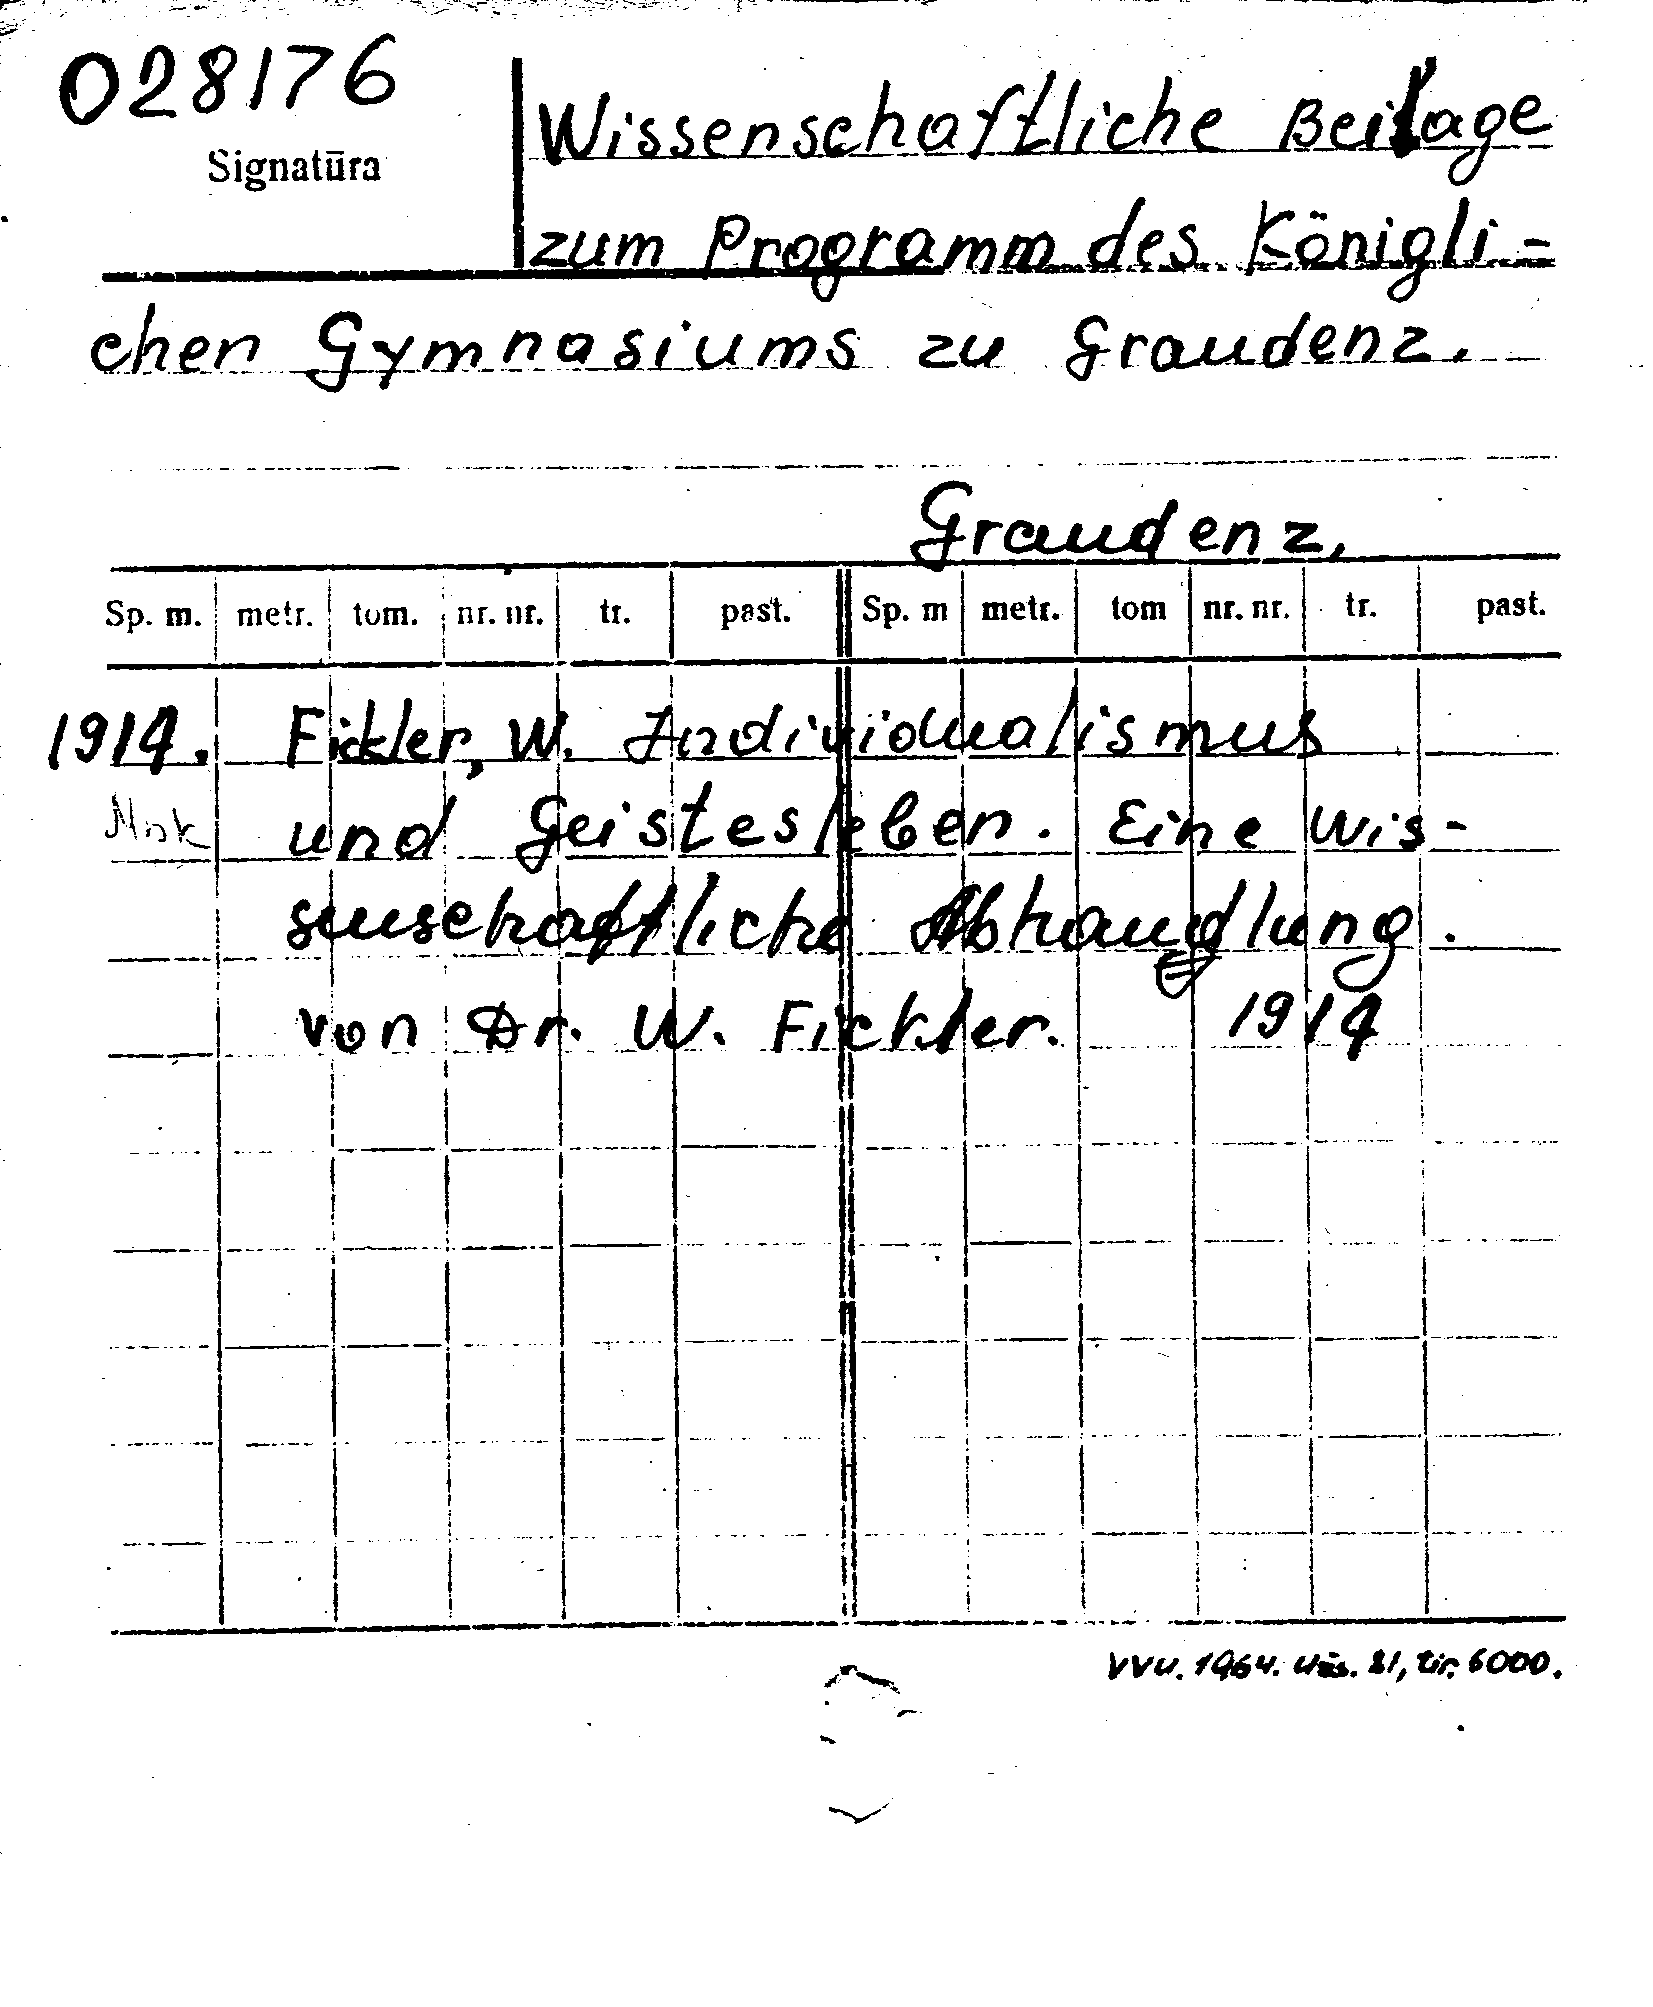 028176
Signatūra
Wissenschaftliche Beilage
zum Programm des Königli=
chen Gymnasiums zu Graudenz.
Graudenz,
Sp. m. metr. tom. nr. nr. tr. past. Sp. m metr. tom nr. nr. tr. past.
1914. Fickler, W. Individualismus
Mok und Geistesleben. Eine wis-
senschaftliche Abhandlung.
von Dr. W. Fickler. 1914
VVU. 1964. Užs. 81, tir. 6000.